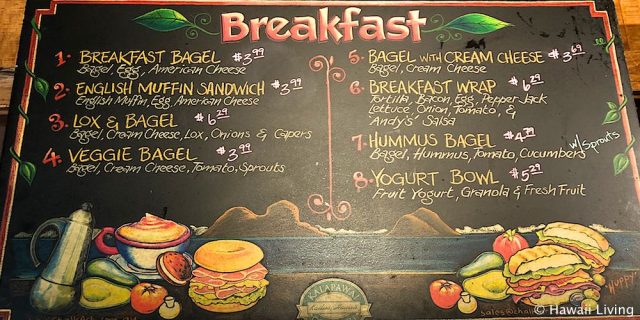 Breakfast
1. BREAKFAST BAGEL $3.99
Bagel, Egg, American Cheese
2. ENGLISH MUFFIN SANDWICH $3.99
English Muffin, Egg American Cheese
3. LOX & BAGEL $6.29
Bagel, Cream Cheese, Lox, Onions & Capers
4. VEGGIE BAGEL $3.99
Bagel, Cream Cheese, Tomato, Sprouts
5. BAGEL WITH CREAM CHEESE $3.69
Bagel, Cream Cheese
6. BREAKFAST WRAP $6.29
Tortilla, Bacon, Egg, Pepper Jack
Lettuce, Onion, Tomato, &
Andy's Salsa
7. HUMMUS BAGEL
Bagel, Hummus, Tomato, Cucumbers w/ Sprouts
8. YOGURT BOWL $5.29
Fruit Yogurt, Granola & Fresh Fruit
KALAPAWAI
© Hawaii Living